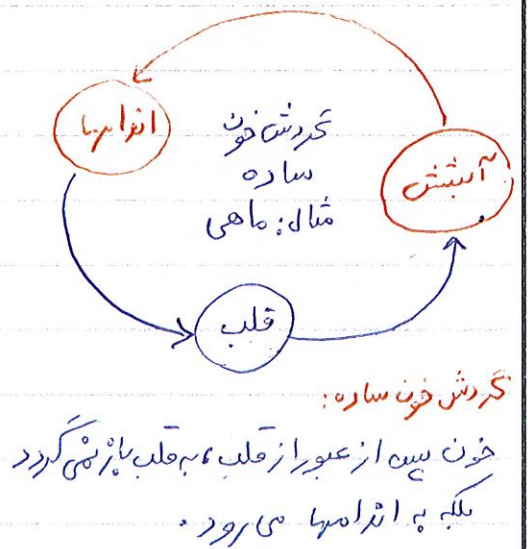 اندامها
گردش خون
ساده
مثال: ماهی
آبشش
قلب
گردش خون ساده:
خون پس از عبور از قلب، به قلب باز نمی گردد
بلکه به اندامها می رود.